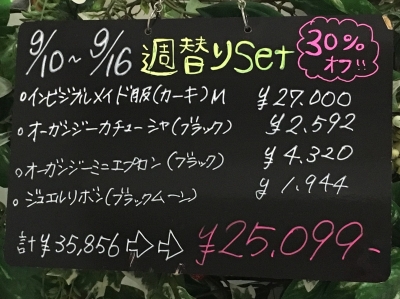 9/10～9/16 週替りSet 30%オフ!!
○インビジブルメイド服(カーキ)M ¥27.000
○オーガンジーカチューシャ(ブラック) ¥2.592
○オーガンジーミニエプロン(ブラック) ¥4.320
○ジュエルリボン(ブラックムーン) ¥1.944
計¥35,856⇨⇨¥25.099-